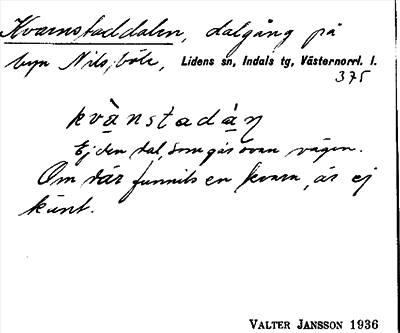 Kvarnstaddalen, dalgång på
byn Nilsböle, Lidens sn, Indals tg, Västernorrl. l.
375
kvànstadáṇ
Ej den dal, som går ovan vägen.
Om där funnits en kvarn, är ej
känt.
VALTER JANSSON 1936